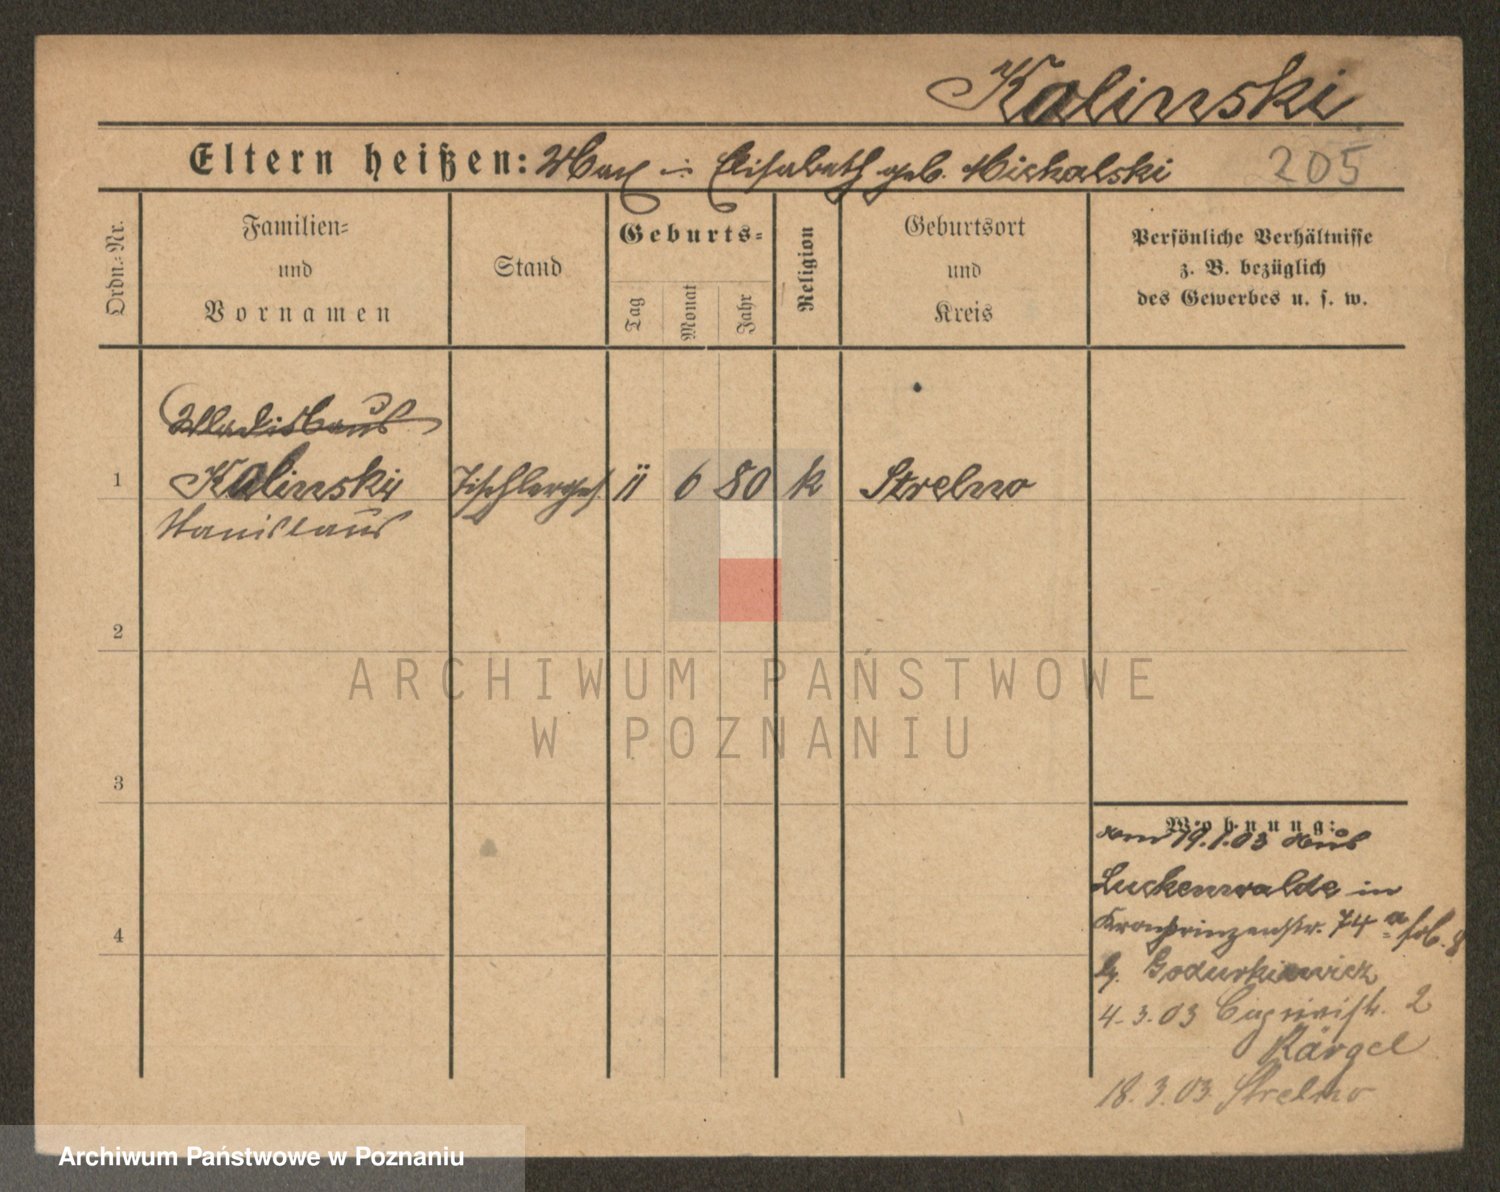 Kalinski
Eltern heißen: Max u. Elisabeth geb. Michalski 205
Ordn.-Nr.
Familien-
und
Vornamen
Stand
Geburts-
Tag
Monat
Jahr
Religion
Geburtsort
und
Kreis
Persönliche Verhältnisse
z. B. bezüglich
des Gewerbes u. s. w.
Wladislaus
1 Kalinski Tischlerges. 11 6 80 k Strelno
Stanislaus
2
3
4
Wohnung:
19.1.03 aus
Luckenwalde in
Kronprinzenstr. 74 a
b.
4.3.03 2
Kärgel
18.3.03 Strelno
ARCHIWUM PAŃSTWOWE
W POZNANIU
Archiwum Państwowe w Poznaniu